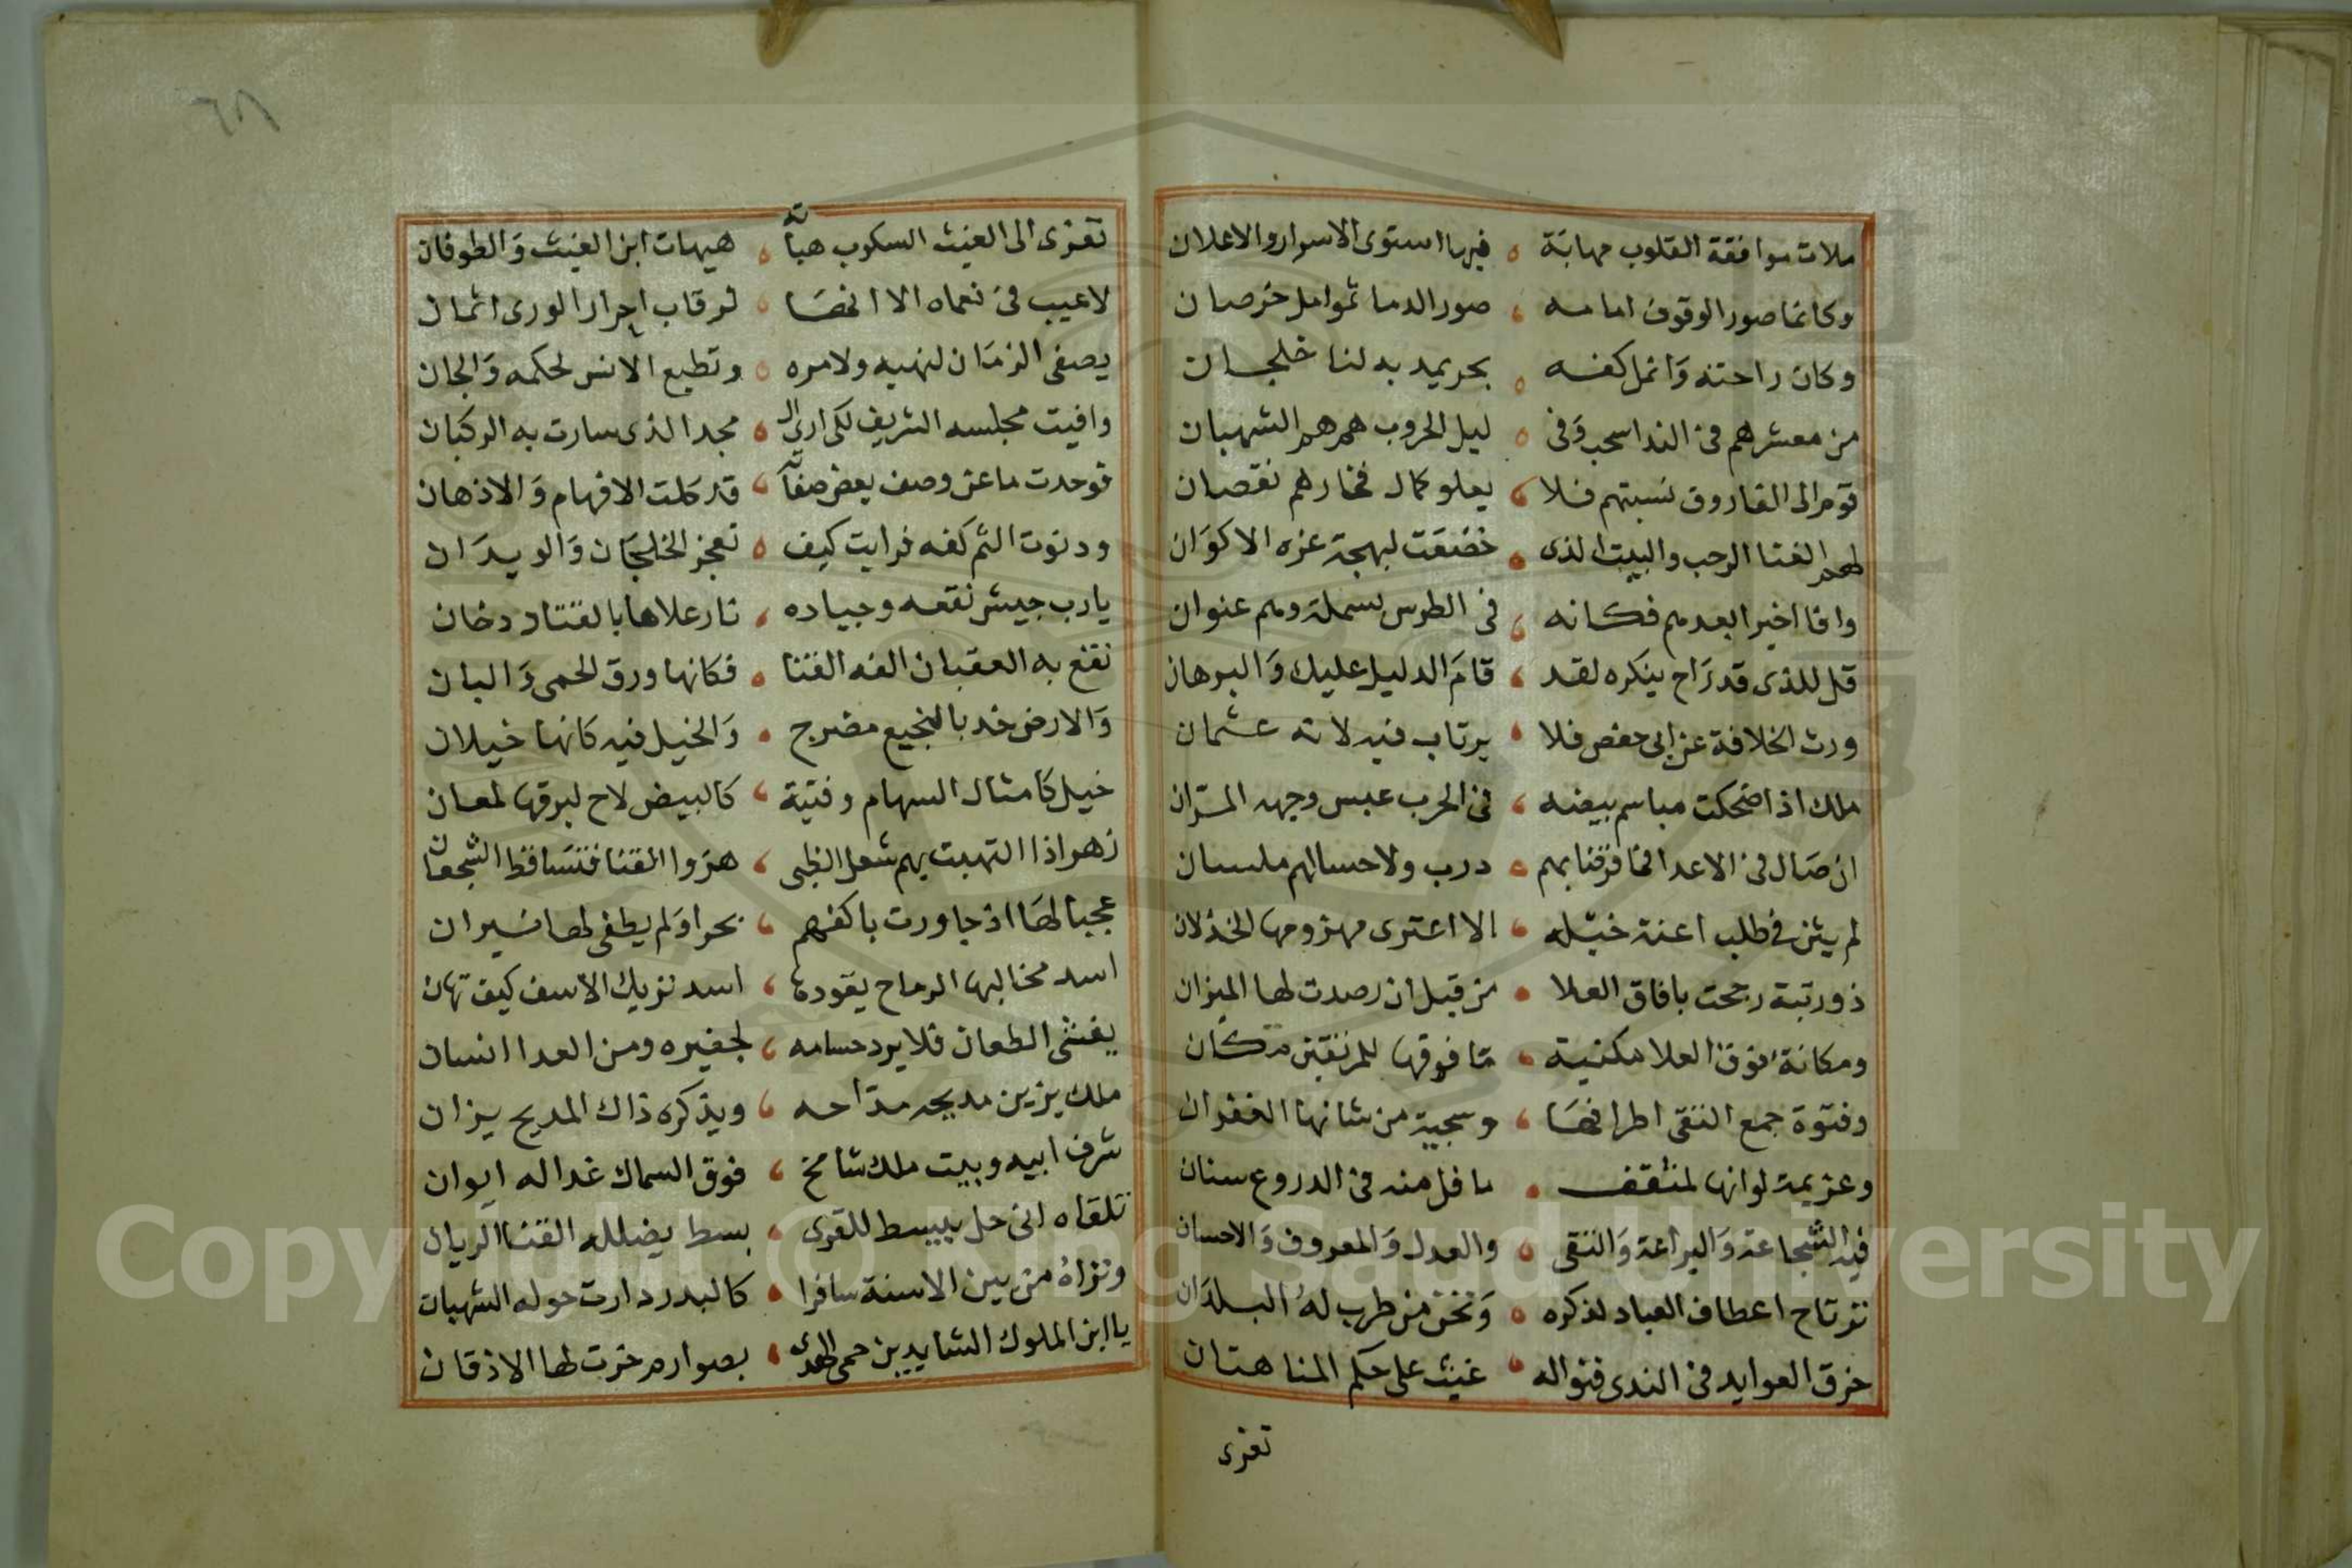 ملات موافقة القلوب مهابة ، فيها استوى الاسرار والاعلان
وكانما صور الوقوف امامه ، صور الدما ثموامل خرصان
وكان راحته وَانمل كفه ، بحر يمد به لنا خلجان
من معشر هم فى الندا سحب وَفى ، ليل الحروب همهم الشهبان
قوم الى الفاروق نسبتهم فلا ، يعلو كمال فخارهم نقصان
لهم الفنا الرحب والبيت الذى ، خضعَت لبهجة عزه الاكوَان
وافا اخيرا بعدهم فكانه ، فى الطرس بسملة وهم عنوان
قل للذى قد رَاح ينكره لقد ، قامَ الدليل عليك وَالبرهان
ورث الخلافة عن ابى حفص فلا ، يرتاب فيه لانه عثمان
ملك اذا ضحكت مباسم بيضه ، فى الحرب عبس وجهه المرّان
ان صَال فى الاعدا فما فرقنا بهم ، درب ولا حسا لهم ملسان
لم يثن فى طلب اعنة خيله ، الا اعترى مهزومها الخذلان
ذو رتبة رجحت بافاق العلا ، من قبل ان رصدت لها الميزان
ومكانة فوق العلا مكنية ، مَا فوقها للمرتقين مكان
وفتوة جمع التقى اطرافهَا ، وسجية من شانها الغفران
وعزيمة لو انها لمثقف ، ما فل منه فى الدروع سنان
فيه الشجاعة وَالبراعة وَالتقى ، والعدل وَالمعروف وَالاحسان
ترتاح اعطاف العباد لذكره ، وَتخن من طرب لهُ البلدَان
خرق العوايد فى الندى فنواله ، غيث على حكم المنا هتان
تعزى
٦٨
تعزى الى الغيث السكوب هباته ، هيهات ابن الغيث وَالطوفان
لا عيب فى نعماه الا انهَا ، لرقاب احرار الورى اثمان
يصغى الزمَان لنهيه ولامره ، وتطيع الانس لحكمه وَالجان
وافيت مجلسه الشريف لكى ارى ال ، مجد الذى سارت به الركبان
فوجدت ما عن وصف بعض صفاته ، قد كلت الافهام وَالاذهان
ودنوت الثم كفه فرايت كيف ، تعجز الخلجَان وَالويدَان
يا رب جيش نقعه وجياده ، نار علاها بالقتاد دخان
نقع به العقبان الفه الفنا ، فكانها ورق الحمى وَالبان
وَالارض خد بالنجيع مضرج ، وَالخيل فيه كانها خيلان
خيل كامثال السهام وفتية ، كالبيض لاح لبرقها لمعان
زهر اذا التهبت بهم شعل الظبى ، هزوا القنا فتسَاقط الشجعان
عجبا لهَا اذ جاورت باكفهم ، بحرا وَلم يطفى لها نيران
اسد مخالبها الرماح يقودها ، اسد نزيك الاسف كيف تهان
يغشى الطعان فلا يرد حسامه ، لجفيره ومن العدا انسان
ملك يزين مديحه مدّاحه ، ويذكره ذاك المديح يزان
شرف ابيه وبيت ملك شامخ ، فوق السماك غدا له ايوان
تلقاه انى حل يبسط للقرى ، بسط يضلله القنا الريان
وتراهُ من بين الاسنة سافرا ، كالبدر دارت حوله الشهبان
يا ابن الملوك الشايدين حمى الهدى ، بصوارم خرت لها الاذقان
Copyright © King Saud University